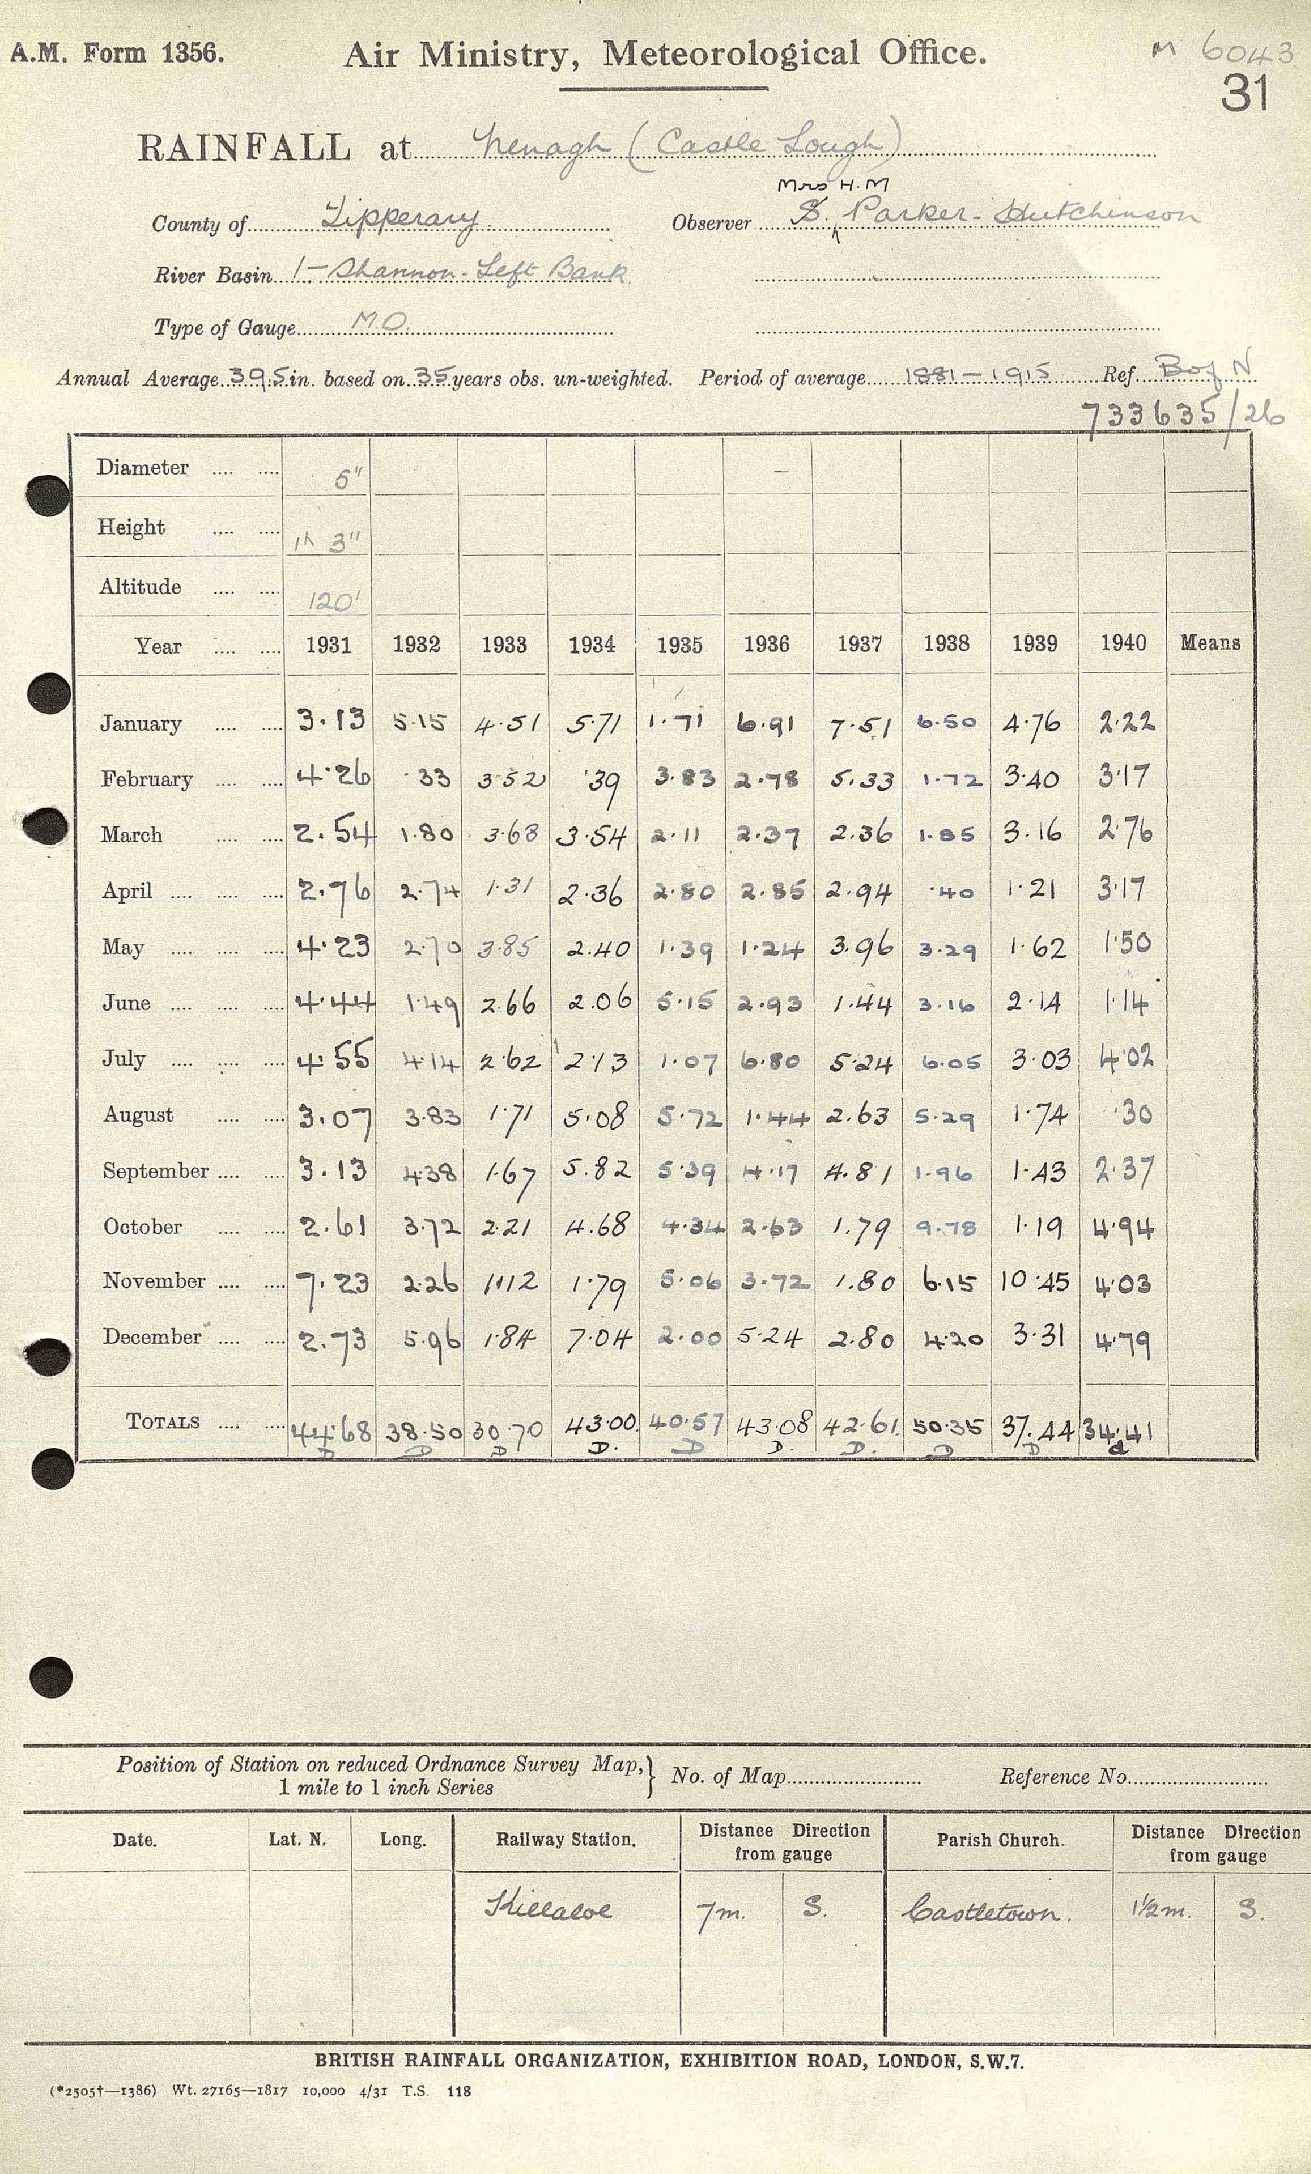 A.M. Form 1356. Air Ministry, Meteorological Office. M 6043
31
RAINFALL at Nenagh (Castle Lough)
Mrs H.M
County of Tipperary. Observer S. Parker-Hutchinson
River Basin 1-Shannon-Left Bank
Type of Gauge M.O.
Annual Average 39.5 in. based on 35 years obs. un-weighted. Period of average 1881-1915 Ref. Bog N
733635/26
Diameter .... .... 5"
Height .... .... 1ft 3"
Altitude .... .... 120'
Year .... .... 1931 1932 1933 1934 1935 1936 1937 1938 1939 1940 Means
January .... .... 3.13 5.15 4.51 5.71 1.71 6.91 7.51 6.50 4.76 2.22
February .... .... 4.26 .33 3.52 .39 3.83 2.78 5.33 1.72 3.40 3.17
March .... .... 2.54 1.80 3.68 3.54 2.11 2.37 2.36 1.85 3.16 2.76
April .... .... .... 2.76 2.74 1.31 2.36 2.80 2.85 2.94 .40 1.21 3.17
May .... .... .... 4.23 2.70 3.85 2.40 1.39 1.24 3.96 3.29 1.62 1.50
June .... .... .... 4.44 1.49 2.66 2.06 5.15 2.93 1.44 3.16 2.14 1.14
July .... .... .... 4.55 4.14 2.62 2.13 1.07 6.80 5.24 6.05 3.03 4.02
August .... .... 3.07 3.83 1.71 5.08 5.72 1.44 2.63 5.29 1.74 .30
September .... .... 3.13 4.38 1.67 5.82 5.39 4.17 4.81 1.96 1.43 2.37
October .... .... 2.61 3.72 2.21 4.68 4.34 2.63 1.79 9.78 1.19 4.94
November .... .... 7.23 2.26 1.12 1.79 5.06 3.72 1.80 6.15 10.45 4.03
December .... .... 2.73 5.96 1.84 7.04 2.00 5.24 2.80 4.20 3.31 4.79
TOTALS .... .... 44.68 38.50 30.70 43.00. 40.57 43.08 42.61. 50.35 37.44 34.41
D D D D. D D. D. D D d
Position of Station on reduced Ordnance Survey Map,} No. of Map Reference No.
1 mile to 1 inch Series
Date. Lat. N. Long. Railway Station. Distance Direction Parish Church. Distance Direction
from gauge from gauge
Killaloe 7m. S. Castletown. 1½m. S.
BRITISH RAINFALL ORGANIZATION, EXHIBITION ROAD, LONDON, S.W.7.
(*2505†—1386) Wt. 27165—1817 10,000 4/31 T.S. 118